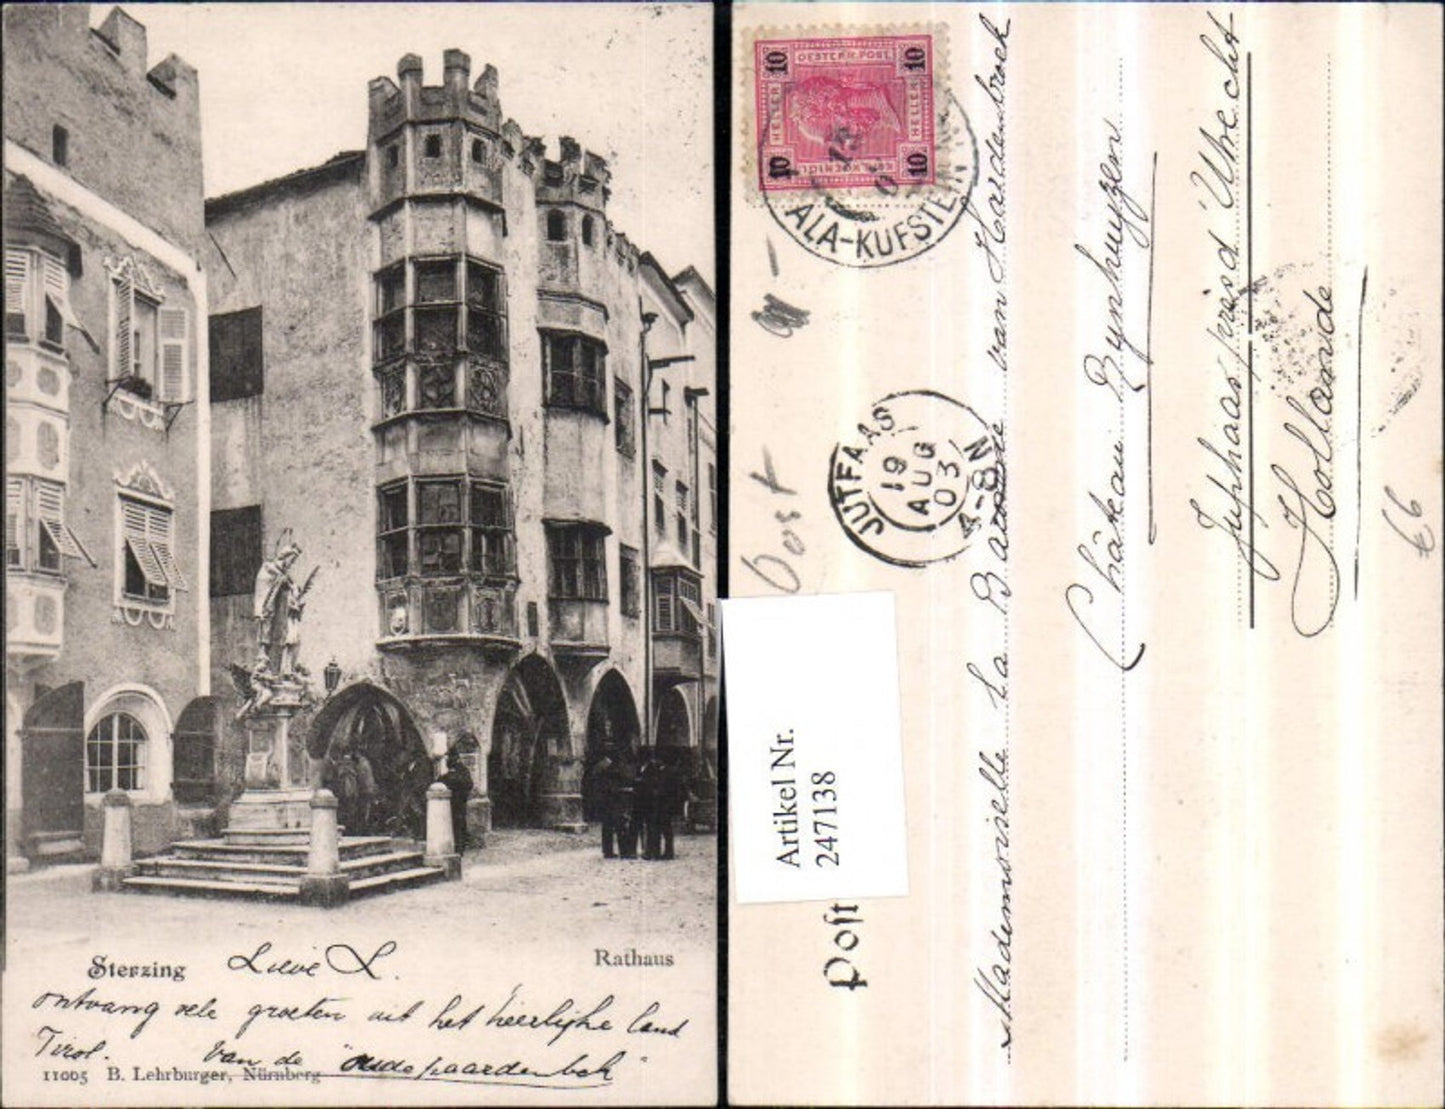 Sterzing
Lieve L.
Rathaus
ontvang vele groeten uit het heerlijke land
Tirol. Van de "oude paardenbek"
11005 B. Lehrburger, Nürnberg
10 OESTERR. POST 10
HELLER HELLER
10 10
ALA-KUFSTEIN
JUTFAAS
19
AUG
03
4-8N
Oost
Post
Artikel Nr.
247138
Mademoiselle La Baronne van Hardenbroek
Château Rynhuyzen
Jupphaas près d'Utrecht
Hollande